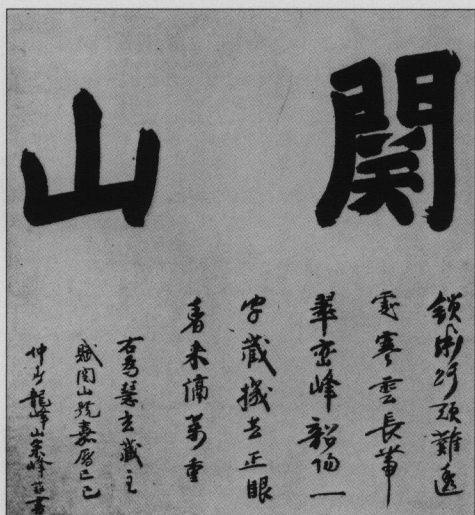 関山
鎖断路頭難透
處寒雲長帯
翠巒峰韶陽一
字藏機去正眼
看来隔萬重
右為慧玄藏主
賦関山號嘉暦己巳
仲春龍峰山宗峰書